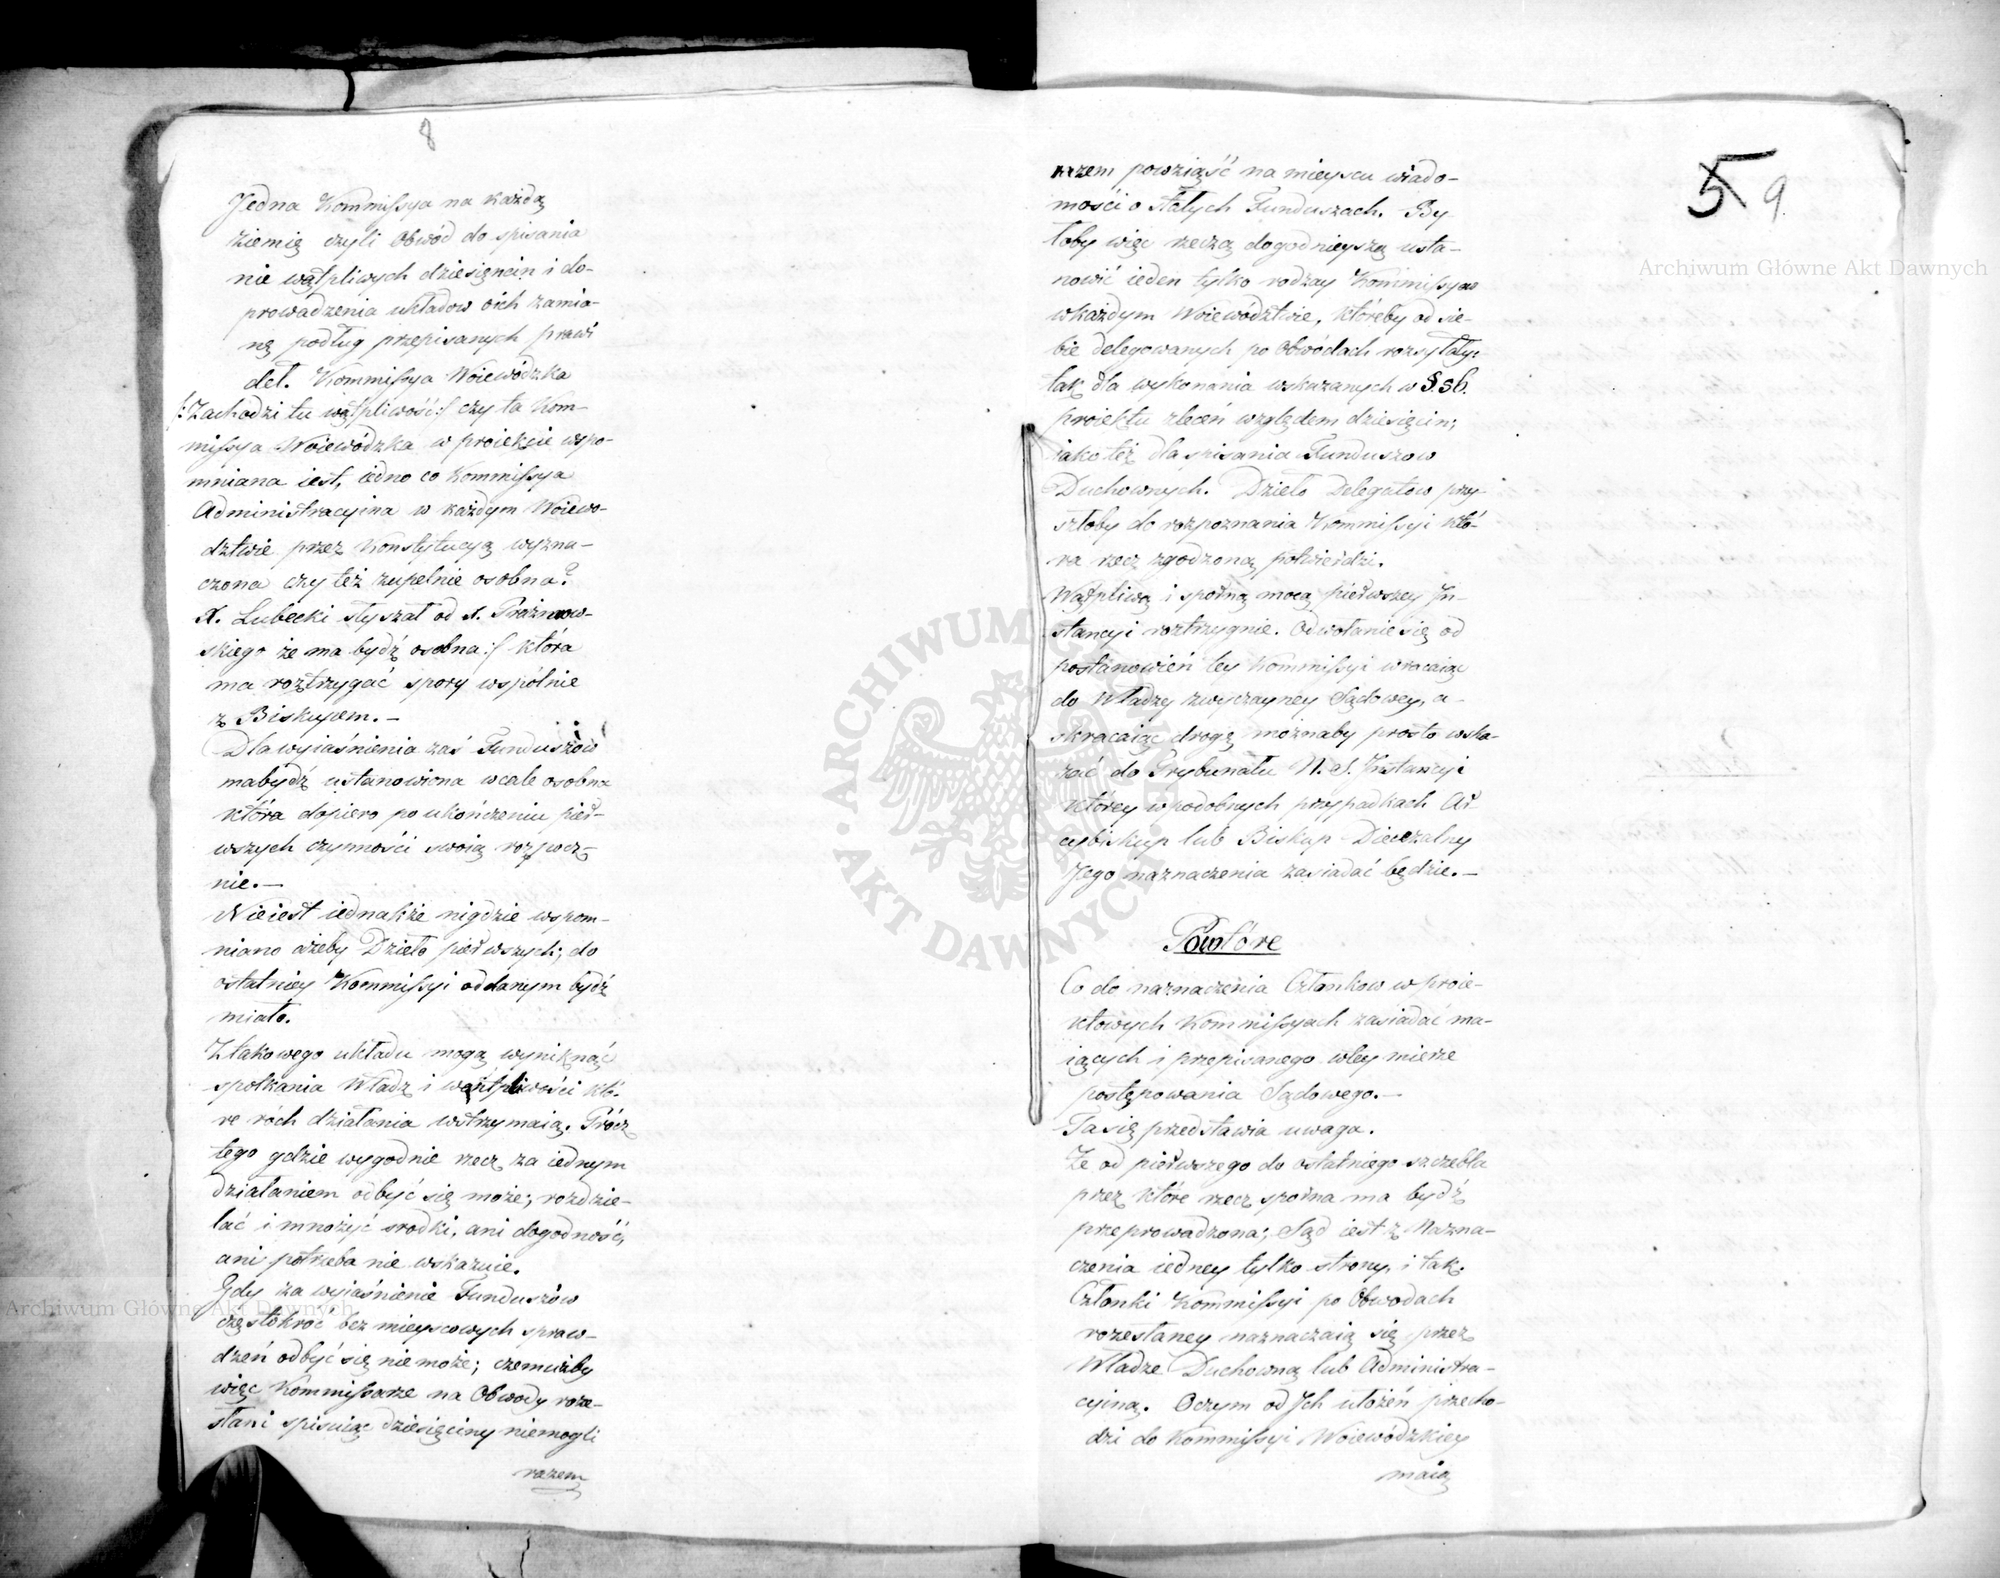 8
Jedna Kommissya na każdą
ziemię czyli Obwód do spisania
nie wątpliwych dziesięncin i do-
prowadzenia układow oich zamia-
nę podług przepisanych prawi
deł. Kommissya Woiewódzka
/:Zachodzi tu wątpliwość:/ czy ta Kom-
missya Woiewódzka w proiekcie wspo-
mniana iest, iedno co Kommissya
Administracyina w każdym Woiewo-
dztwie przez Konstytucyą wyzna-
czona czy też zupełnie osobna?
X. Lubecki słyszał od X. Prażmow-
skiego że ma bydź osobna:/ która
ma roztrzygać spory wspólnie
z Biskupem. —
Dla wyiaśnienia zaś Funduszów
mabydź ustanowiona wcale osobna
która dopiero po ukończeniu pier-
wszych czynności swoią rozpocz-
nie. —
Nieiest iednakże nigdzie wspom-
niano ażeby Dzieło pierwszych; do
ostatniey Kommissyi oddanym bydź
miało.
Ztakowego układu mogą wyniknąć
spotkania Władz i wątpliwości któ-
re róch działania wstrzymaią. Prócz
tego gdzie wygodnie rzecz za iednym
działaniem odbyć się może; rozdzie-
lać i mnożyć srodki, ani dogodność,
ani potrzeba nie wskazuie.
Gdy za wyiaśnienie Funduszów
częstokroć bez mieyscowych spraw-
dzeń odbyć się nie może; czemużby
więc Kommissarze na Obwody roze-
słani spisuiąc dziesięciny niemogli
razem
5 9.
razem powziąść na mieyscu wiado-
mości o stałych Funduszach. By-
łoby więc rzeczą dogodnieyszą usta-
nowić ieden tylko rodzay Kommissyow
wkażdym Woiewództwie, któreby od sie-
bie delegowanych po Obwódach rozsyłały:
tak dla wykonania wskazanych w §. 56.
proiektu zleceń względem dziesięcin;
iako też dla spisania Funduszow
Duchownych. Dzieło Delegatow przy-
szłoby do rozpoznania Kommissyi któ-
ra rzecz zgodzoną potwierdzi.
Wątpliwą i sporną mocą pierwszey In-
stancyi roztrzygnie. Odwołanie się od
postanowień tey Kommissyi wracaiąc
do Władzy zwyczayney Sądowey, a-
skracaiąc drogę możnaby prosto wska-
zać do Trybunału N. S. Instancyi
którey wpodobnych przypadkach Ar-
cybiskup lub Biskup Diecezalny
Jego naznaczenia zasiadać będzie. —
Powtóre
Co do naznaczenia Członkow w proie-
ktowych Kommissyach zasiadać ma-
iących i przepisanego wtey mierze
postępowania Sądowego. —
Ta się przedstawia uwaga.
Że od pierwszego do ostatniego szczebla
przez które rzecz sporna ma bydź
przeprowadzona; Sąd iest z Nazna-
czenia iedney tylko strony, i tak.
Członki Kommissyi po Obwodach
rozesłaney naznaczaią się przez
Władze Duchowną lub Administra-
cyiną. Oczym od Ich ułożeń przecho-
dzi do Kommissyi Woiewódzkiey
maią
Archiwum Główne Akt Dawnych
Archiwum Główne Akt Dawnych
ARCHIWUM GŁÓWNE · AKT DAWNYCH ·